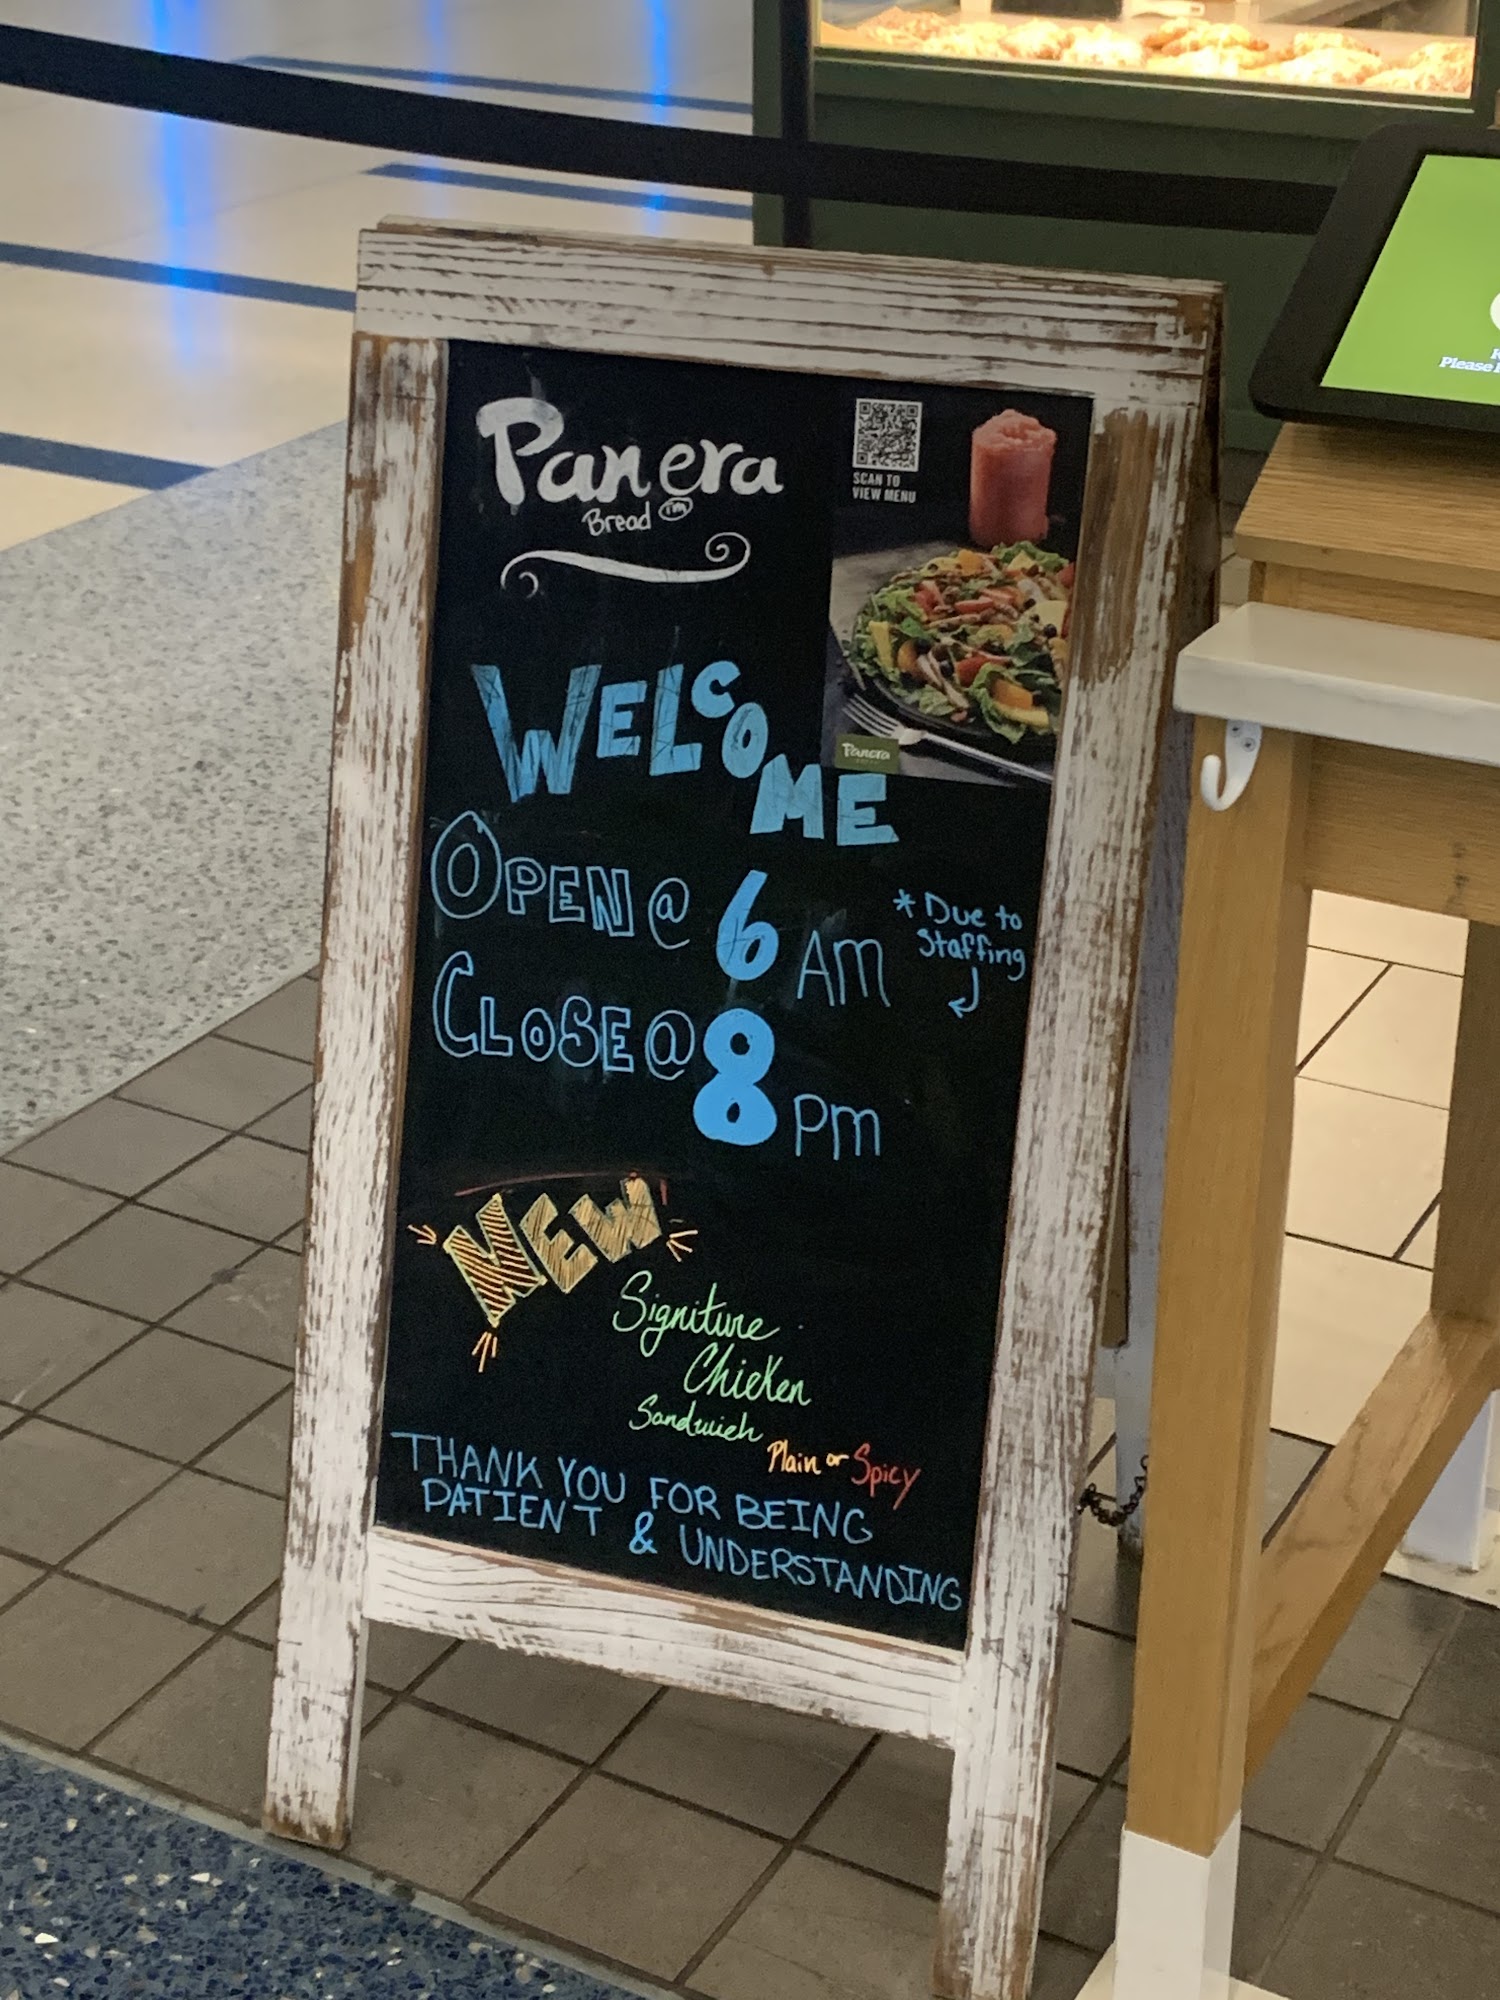 Panera
Bread TM
SCAN TO
VIEW MENU
Panera
WELCOME
OPEN @ 6 AM
* Due to
Staffing
CLOSE @ 8 PM
NEW
Signiture
Chicken
Sandwich
Plain or Spicy
THANK YOU FOR BEING
PATIENT & UNDERSTANDING
Please